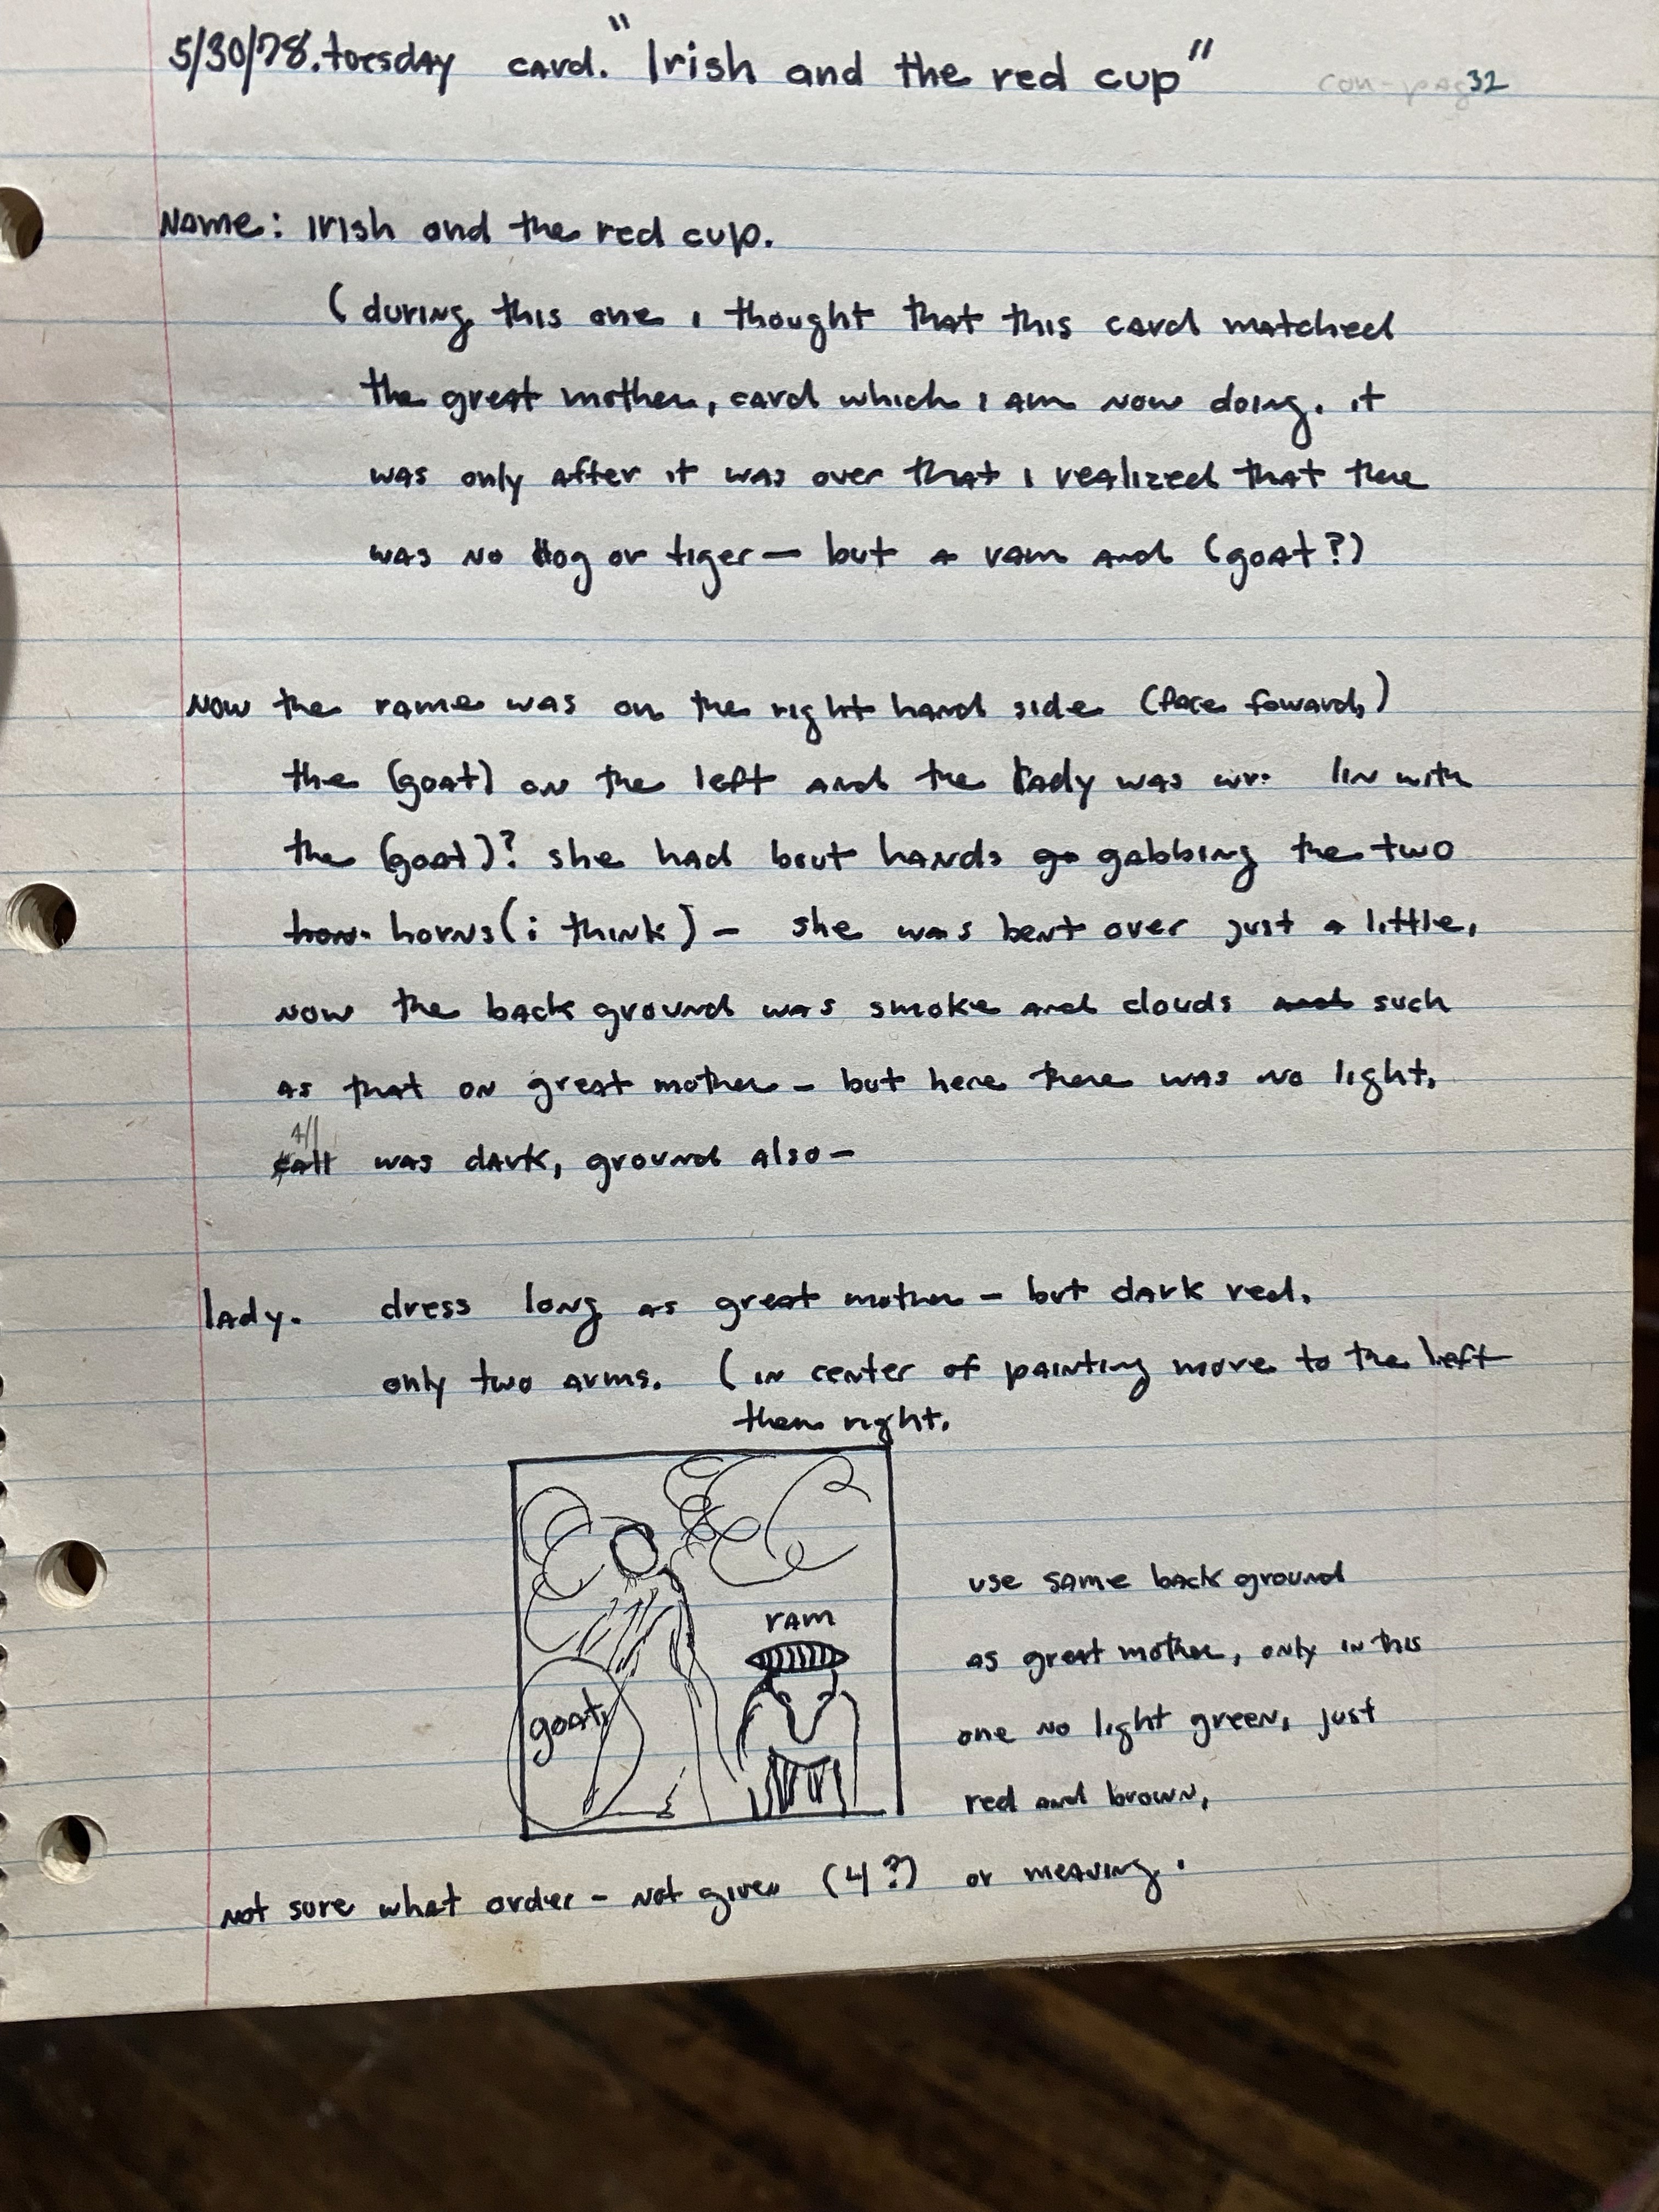 5/30/78. tuesday card. "Irish and the red cup" con-pag 32
Name: Irish and the red cup.
(during this one i thought that this card matched
the great mother, card which i am now doing. it
was only after it was over that i realized that there
was no dog or tiger — but a ram and (goat?)
Now the rame was on the right hand side (face foward)
the (goat) on the left and the lady was wr. lin with
the (goat)? she had bout hands go gabbing the two
hor. horns (i think) — she was bent over just a little,
now the back ground was smoke and clouds and such
as that on great mother — but here there was no light.
All
was dark, ground also —
lady. dress long as great mother — but dark red.
only two arms. (in center of painting move to the left
then right.
ram
goat
use same back ground
as great mother, only in this
one no light green, just
red and brown,
not sure what order — not given (4?) or meaning.